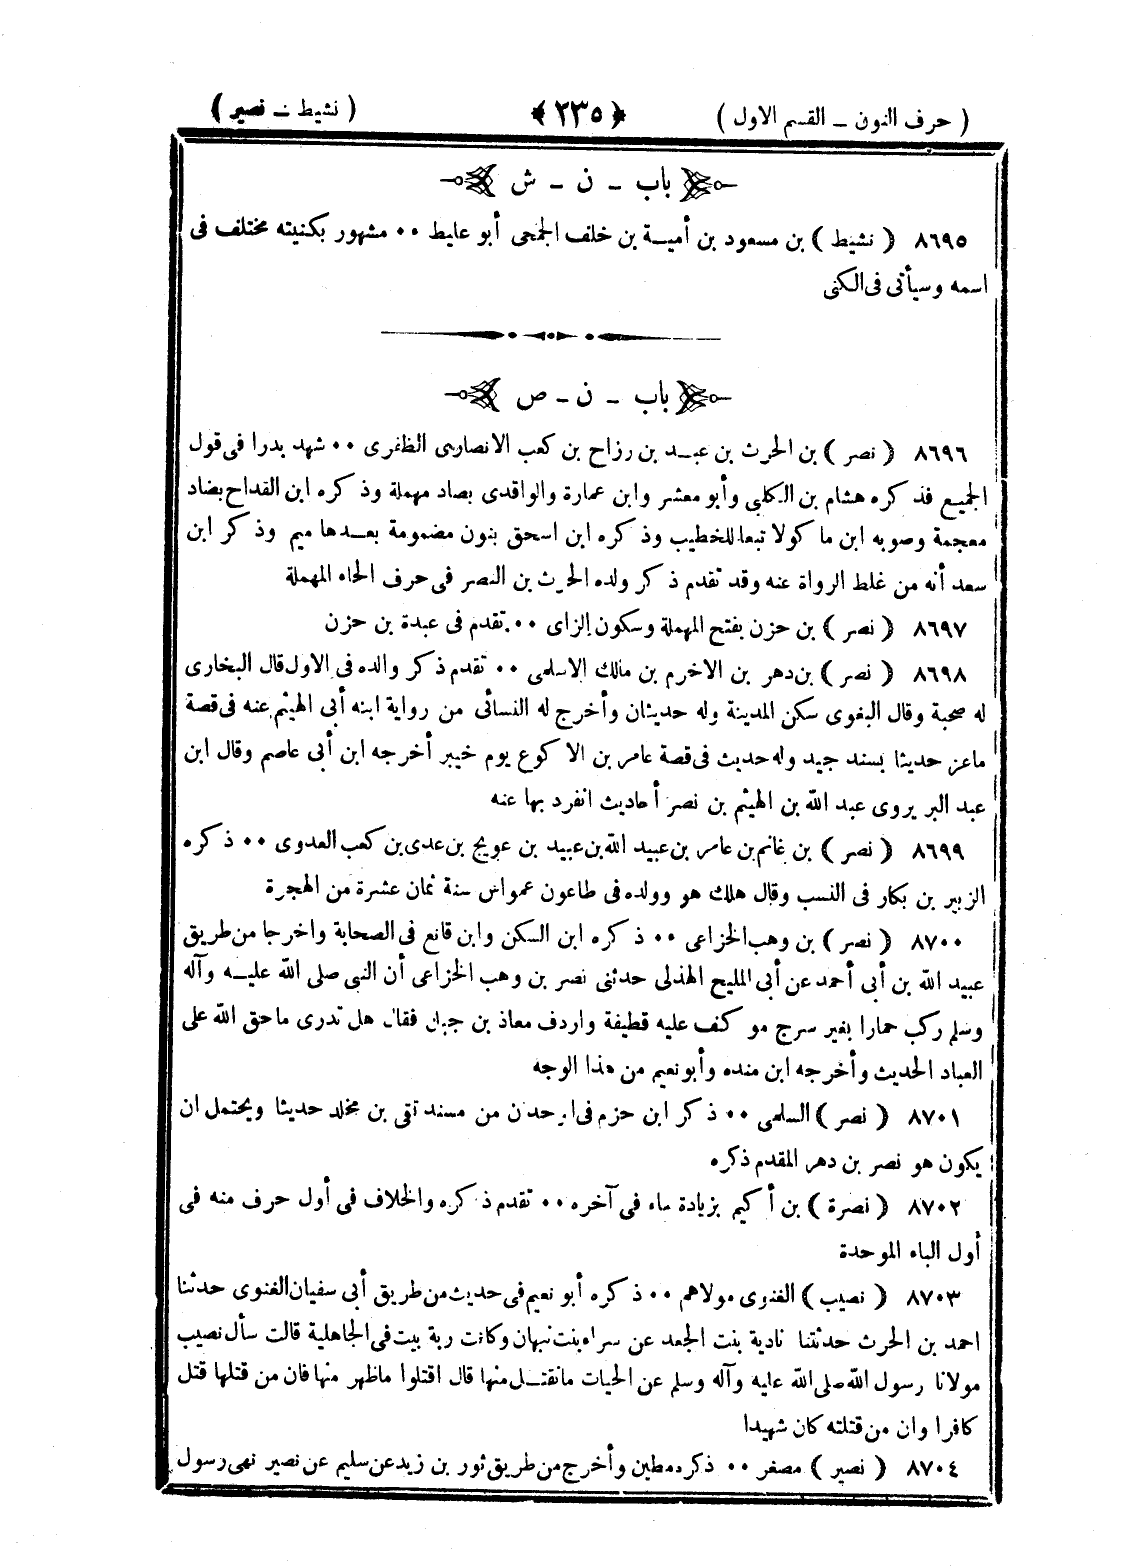 ( حرف النون ـ القسم الاول ) ﴿٢٣٥﴾ ( نشيط ـ نصير )
باب ـ ن ـ ش
٨٦٩٥ ( نشيط ) بن مسعود بن أميـة بن خلف الجمحى أبو عليط ٠٠ مشهور بكنيته مختلف فى
اسمه وسيأتى فى الكنى
باب ـ ن ـ ص
٨٦٩٦ ( نصر ) بن الحرث بن عبـد بن رزاح بن كعب الانصارى الظفرى ٠٠ شهد بدرا فى قول
الجميع فذكره هشام بن الكلبي وأبو معشر وابن عمارة والواقدى بصاد مهملة وذكره ابن القداح بضاد
معجمة وصوبه ابن ماكولا تبعا للخطيب وذكره ابن اسحق بنون مضمومة بعـدها ميم وذكر ابن
سعد أنه من غلط الرواة عنه وقد تقدم ذكر ولده الحرث بن النصر فى حرف الحاء المهملة
٨٦٩٧ ( نصر ) بن حزن بفتح المهملة وسكون الزاى ٠٠ تقدم فى عبدة بن حزن
٨٦٩٨ ( نصر ) بن دهر بن الاخرم بن مالك الاسلمى ٠٠ تقدم ذكر والده فى الاول قال البخارى
له صحبة وقال البغوى سكن المدينة وله حديثان وأخرج له النسائى من رواية ابنه أبى الهيثم عنه فى قصة
ماعز حديثا بسند جيد وله حديث فى قصة عامر بن الاكوع يوم خيبر أخرجه ابن أبى عاصم وقال ابن
عبد البر يروى عبد الله بن الهيثم بن نصر أحاديث انفرد بها عنه
٨٦٩٩ ( نصر ) بن غانم بن عامر بن عبيد الله بن عبيد بن عويج بن عدى بن كعب العدوى ٠٠ ذكره
الزبير بن بكار فى النسب وقال هلك هو وولده فى طاعون عمواس سنة ثمان عشرة من الهجرة
٨٧٠٠ ( نصر ) بن وهب الخزاعى ٠٠ ذكره ابن السكن وابن قانع فى الصحابة واخرجا من طريق
عبيد الله بن أبى أحمد عن أبى المليح الهذلى حدثنى نصر بن وهب الخزاعى أن النبى صلى الله عليـه وآله
وسلم ركب حمارا بغير سرج موكف عليه قطيفة واردف معاذ بن جبل فقال هل تدرى ما حق الله على
العباد الحديث وأخرجه ابن منده وأبونعيم من هذا الوجه
٨٧٠١ ( نصر ) السلمى ٠٠ ذكر ابن حزم فى الوحدان من مسند تقى بن مخلد حديثا ويحتمل ان
يكون هو نصر بن دهر المقدم ذكره
٨٧٠٢ ( نصرة ) بن أكيم بزيادة هاء فى آخره ٠٠ تقدم ذكره والخلاف فى أول حرف منه فى
أول الباء الموحدة
٨٧٠٣ ( نصيب ) الغنوى مولاهم ٠٠ ذكره أبو نعيم فى حديث من طريق أبى سفيان الغنوى حدثنا
احمد بن الحرث حدثتنا نادية بنت الجعد عن سراء بنت نبهان وكانت ربة بيت فى الجاهلية قالت سأل نصيب
مولانا رسول الله صلى الله عليه وآله وسلم عن الحيات ما نقتـل منها قال اقتلوا ماظهر منها فان من قتلها قتل
كافرا وان من قتلته كان شهيدا
٨٧٠٤ ( نصير ) مصغر ٠٠ ذكره مطين وأخرج من طريق ثور بن زيد عن سليم عن نصير نهى رسول